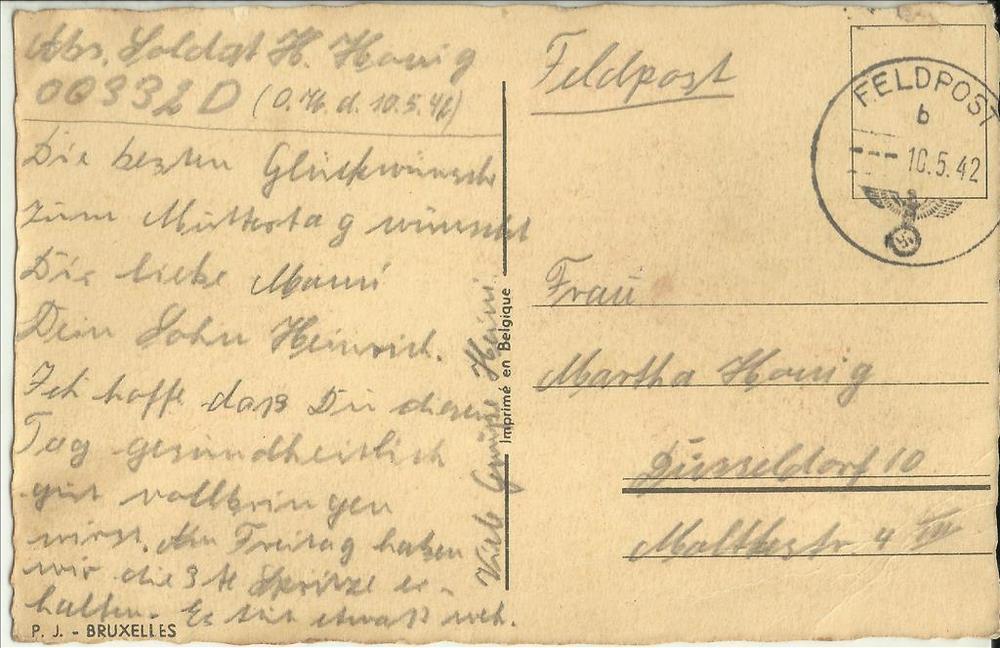 Abs. Soldat H. Honig
00332 D (O.U. d. 10.5.42)
Die besten Glückwünsche
zum Muttertag wünscht
Dir liebe Mami
Dein Sohn Heinrich.
Ich hoffe daß Du diesen
Tag gesundheitlich
gut vollbringen
wirst. Am Freitag haben
wir die 3te Spritze er-
halten. Es tut etwaß weh.
Viele Grüße Heini
P. J. - BRUXELLES
Imprimé en Belgique
Feldpost
FELDPOST
b
10.5.42
Frau
Martha Honig
Düsseldorf 10
Moltkestr 4 III